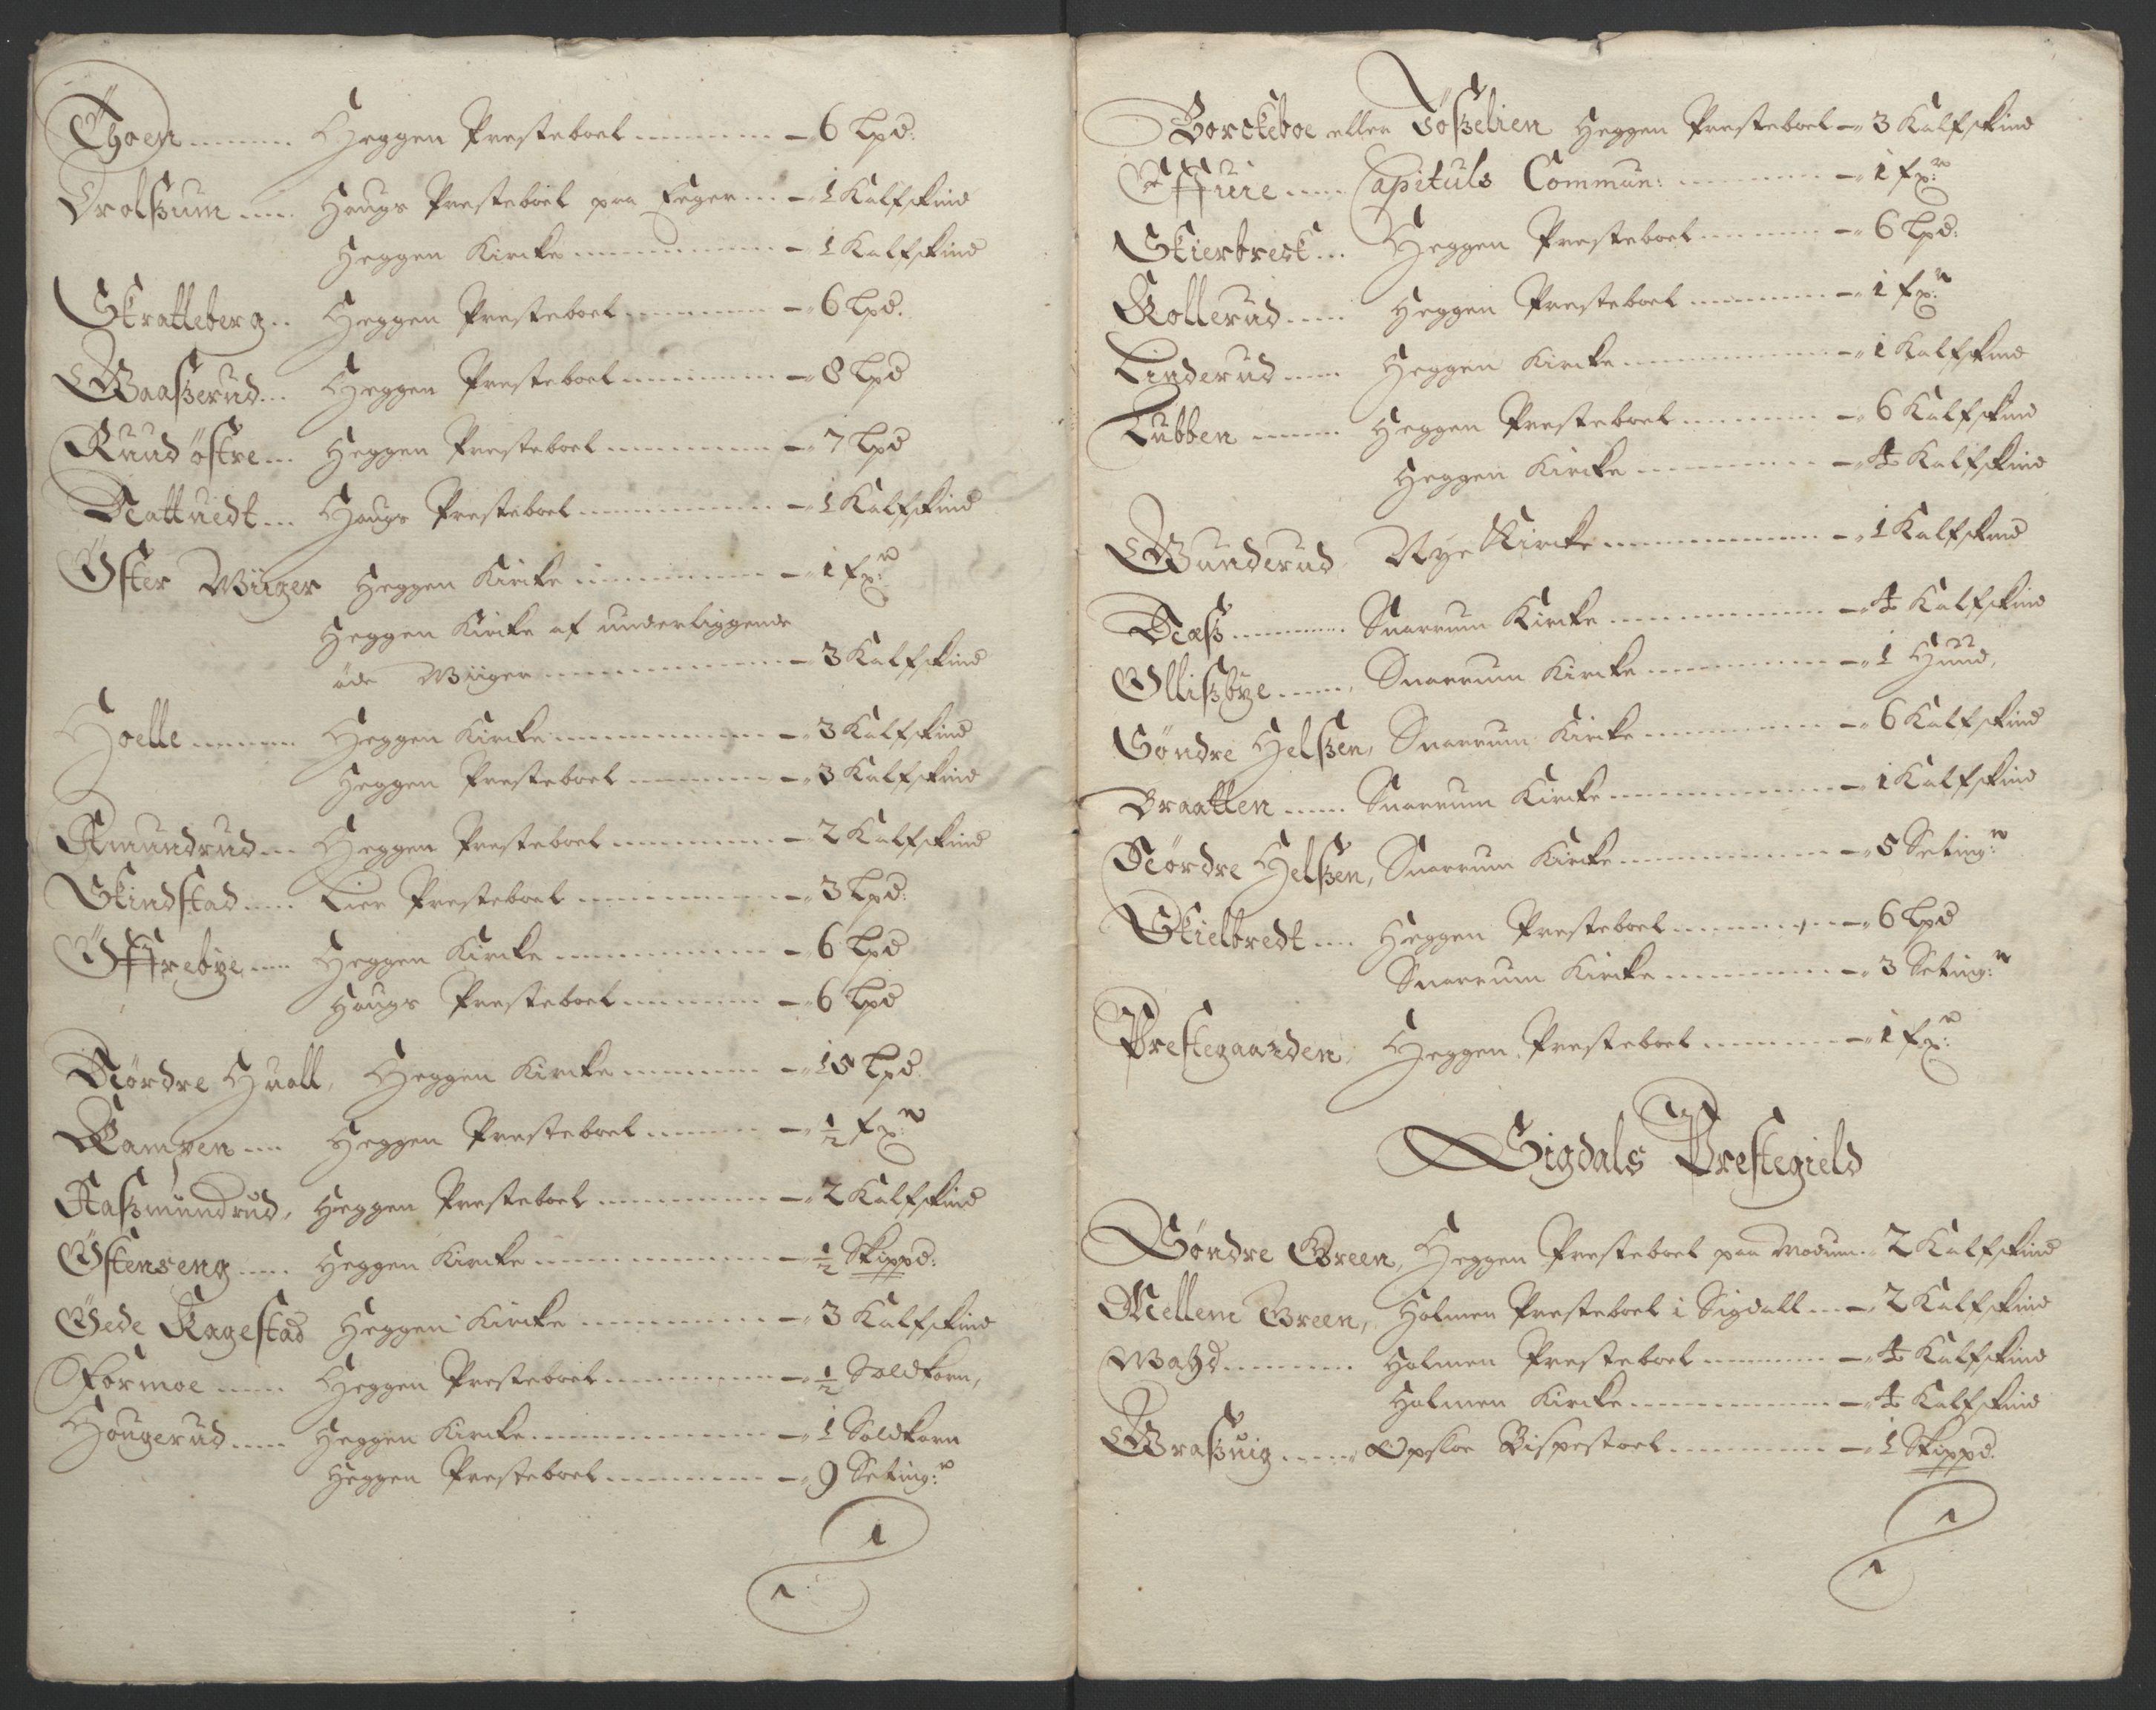 Thoen ........ Heggen Presteboel ........ – 6 Lpd:
Drolßum .... Hougs Presteboel paa Eeger ... – 1 Kalfskind
Heggen Kircke ........ – 1 Kalfskind
Skratteberg .. Heggen Presteboel ........ – 6 Lpd.
Waaßerud ... Heggen Presteboel ........ – 8 Lpd
Ruud östre ... Heggen Presteboel ........ – 7 Lpd
Nattuedt ... Hougs Presteboel ........ – 1 Kalfskind
Öster Wiiger Heggen Kircke ........ – 1 fx:r
Heggen Kircke af underliggende
öde Wiiger ........ – 3 Kalfskind
Hoelle ...... Heggen Kircke ........ – 3 Kalfskind
Heggen Presteboel ........ – 3 Kalfskind
Amundrud ... Heggen Presteboel ........ – 2 Kalfskind
Skindstad .... Lier Presteboel ........ – 3 Lpd:
Öffrebye .... Heggen Kircke ........ – 6 Lpd
Hougs Presteboel ........ – 6 Lpd
Nördre Huall, Heggen Kircke ........ – 15 Lpd.
Kampen .... Heggen Presteboel ........ – 1/2 fx:r
Raßmundrud, Heggen Presteboel ........ – 2 Kalfskind
Östenseng .... Heggen Kircke ........ – 1/2 Skippd:
Öede Kagestad Heggen Kircke ........ – 3 Kalfskind
Formoe .... Heggen Presteboel ........ – 1/2 Soldkorn,
Hougerud .... Heggen Kircke ........ – 1 Soldkorn
Heggen Presteboel ........ – 9 Seting:r
Borckeboe eller Föskelien Heggen Presteboel – 3 Kalfskind
Effuie .... Capituls Commun: ........ – 1 fx:r
Skierbreck ... Heggen Presteboel ........ – 6 Lpd:
Kollerud .... Heggen Presteboel ........ – 1 fx:r
Linderud .... Heggen Kircke ........ – 1 Kalfskind
Lubben ..... Heggen Presteboel ........ – 6 Kalfskind
Heggen Kircke ........ – 4 Kalfskind
Wunderud, Nye Kircke ........ – 1 Kalfskind
Næß ........ Snarrum Kircke ........ – 4 Kalfskind
Ollißbye ...., Snarrum Kircke ........ – 1 Huud,
Söndre Helßen, Snarrum Kircke ........ – 6 Kalfskind
Braatten .... Snarrum Kircke ........ – 1 Kalfskind
Nördre Helßen, Snarrum Kircke ........ – 5 Seting:r
Skielbredt .... Heggen Presteboel ........ – 6 Lpd
Snarrum Kircke ........ – 3 Seting:r
Prestegaarden, Heggen Presteboel ........ – 1 fx:r
Sigdals Prestegield
Söndre Green, Heggen Presteboel paa Modum .. 2 Kalfskind
Mellem Green, Holmen Presteboel i Sigdall ... – 2 Kalfskind
Watzd ........ Holmen Presteboel ........ – 4 Kalfskind
Holmen Kircke ........ – 4 Kalfskind
Graßuig ..... Opsloe Bispestoel ........ – 1 Skippd.